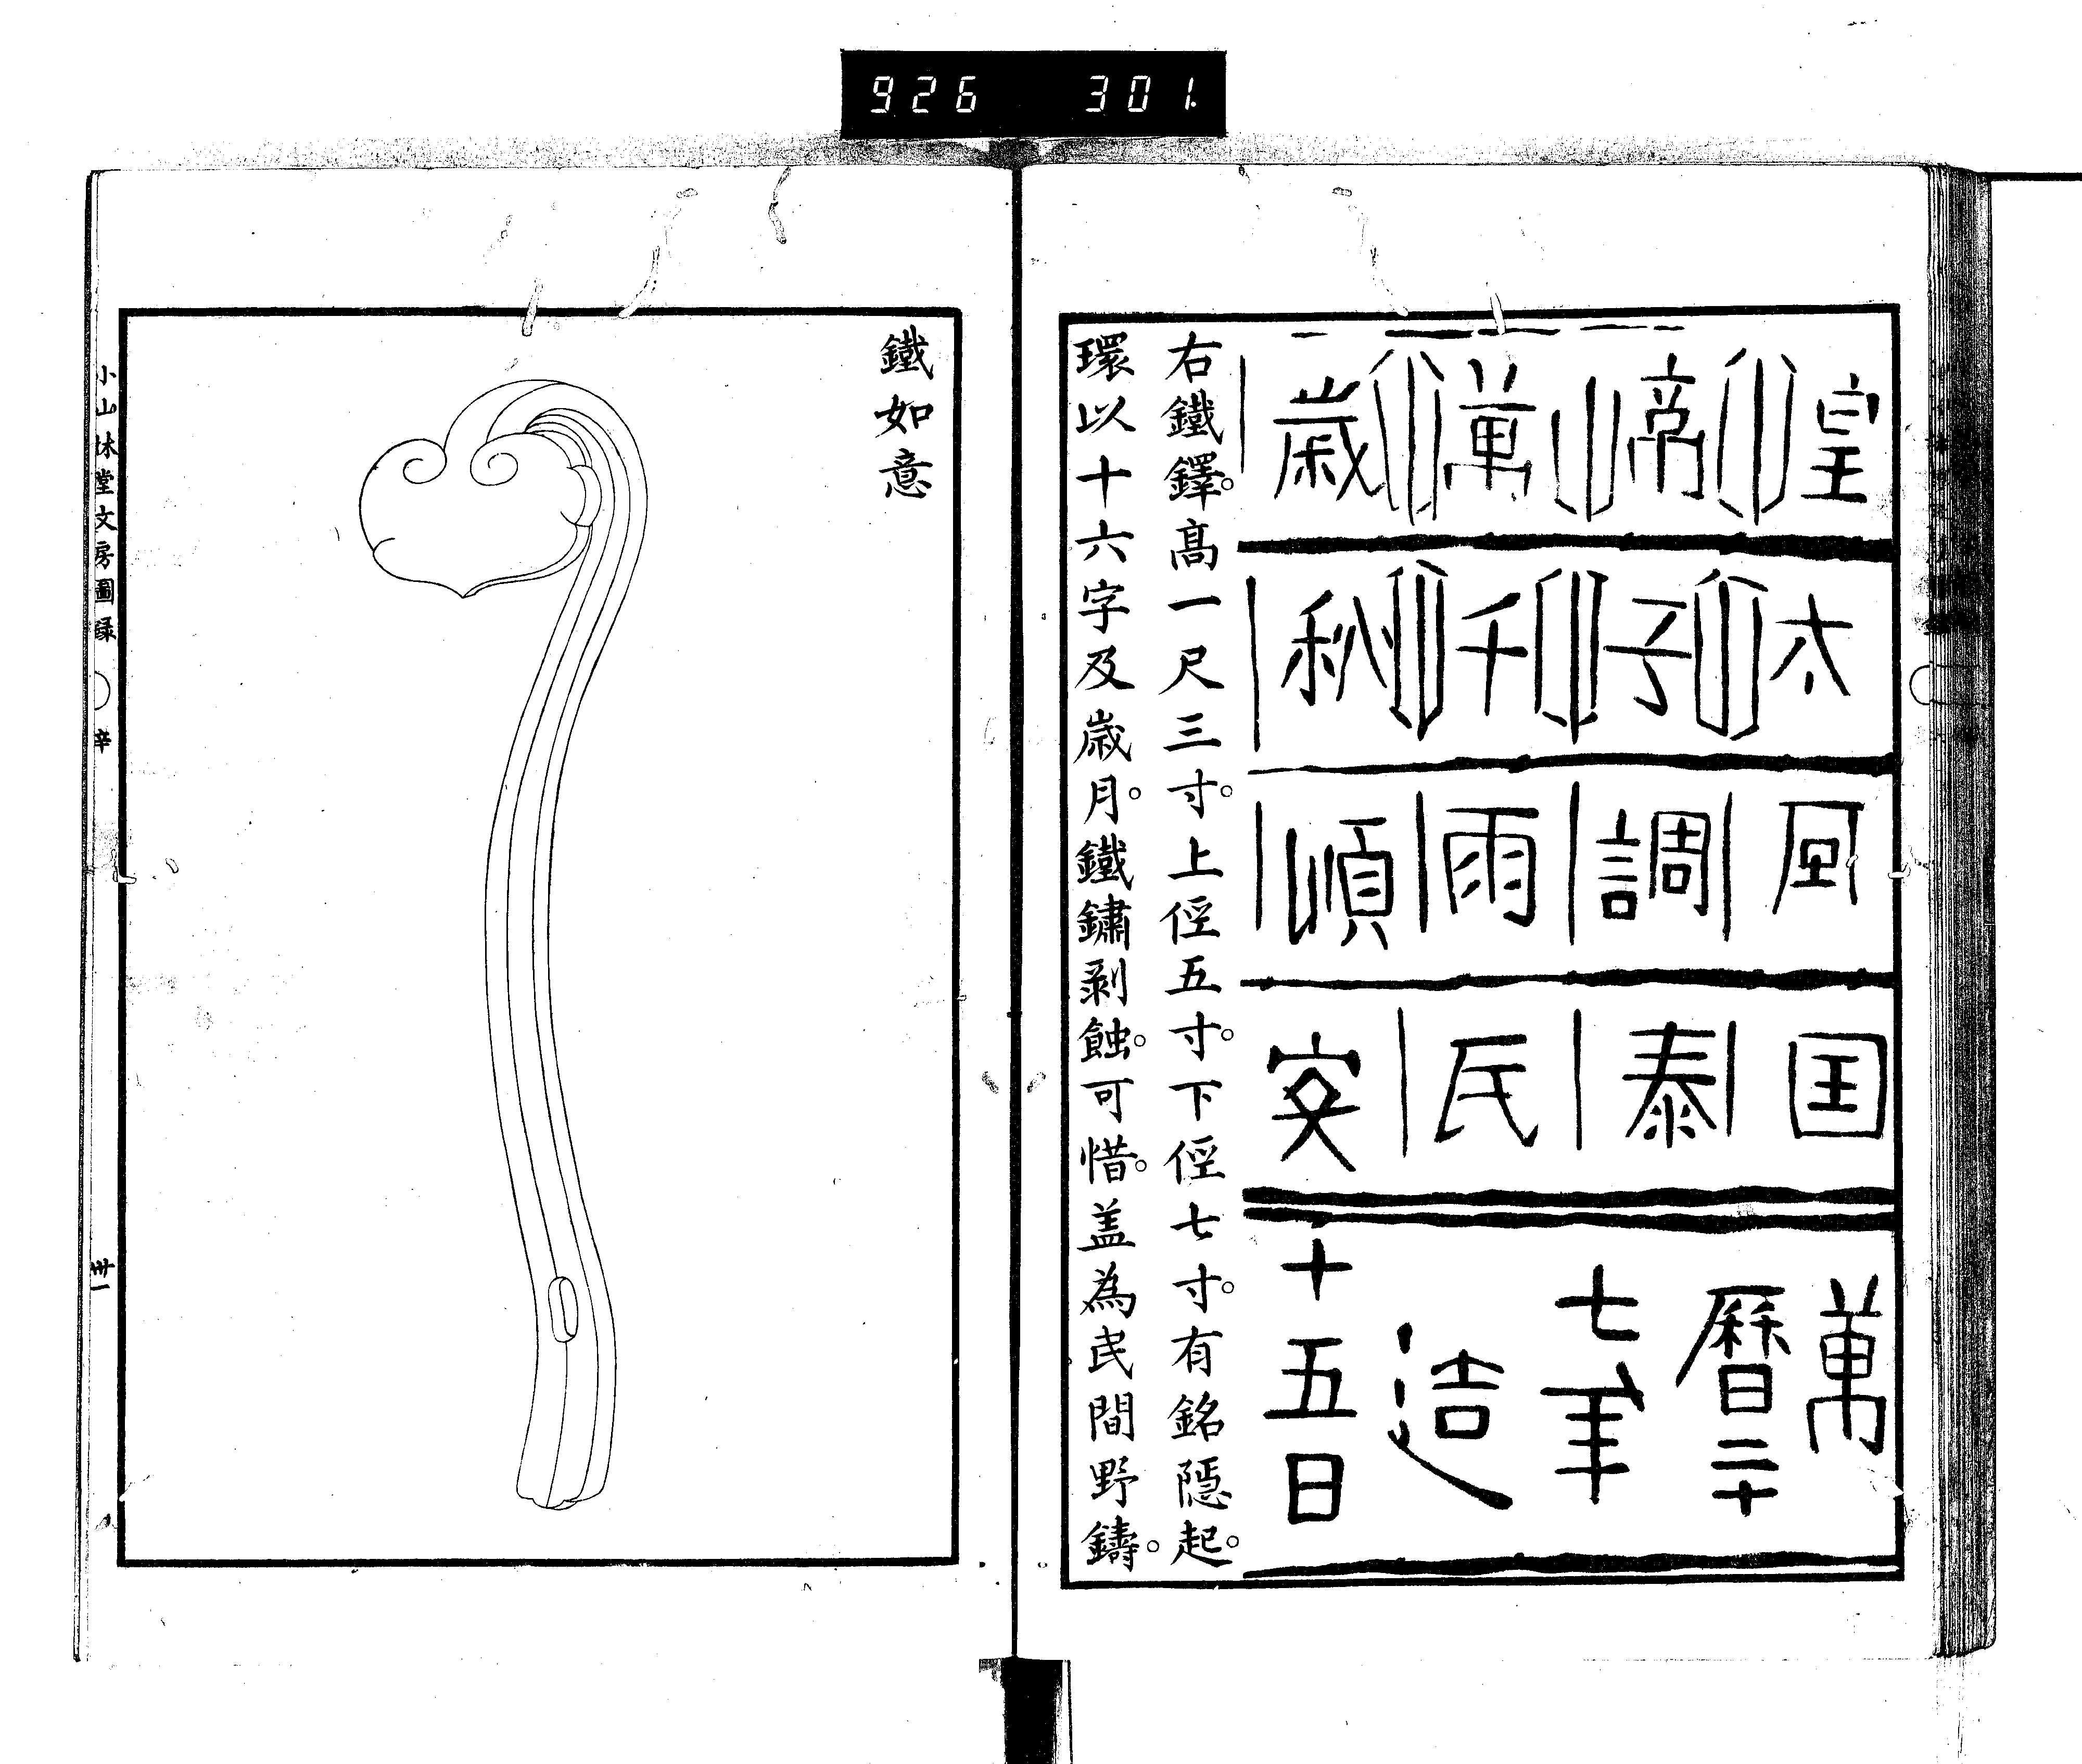 926 301
皇帝萬歳
太子千秋
風調雨順
囯泰民安
萬曆二十七年造十五日
右鐵鐸。高一尺三寸。上俓五寸。下俓七寸。有銘隱起。
環以十六字及歳月。鐵鏽剥蝕。可惜。盖為民間野鑄。
鐵如意
小山林堂文房圖録 辛 卅一